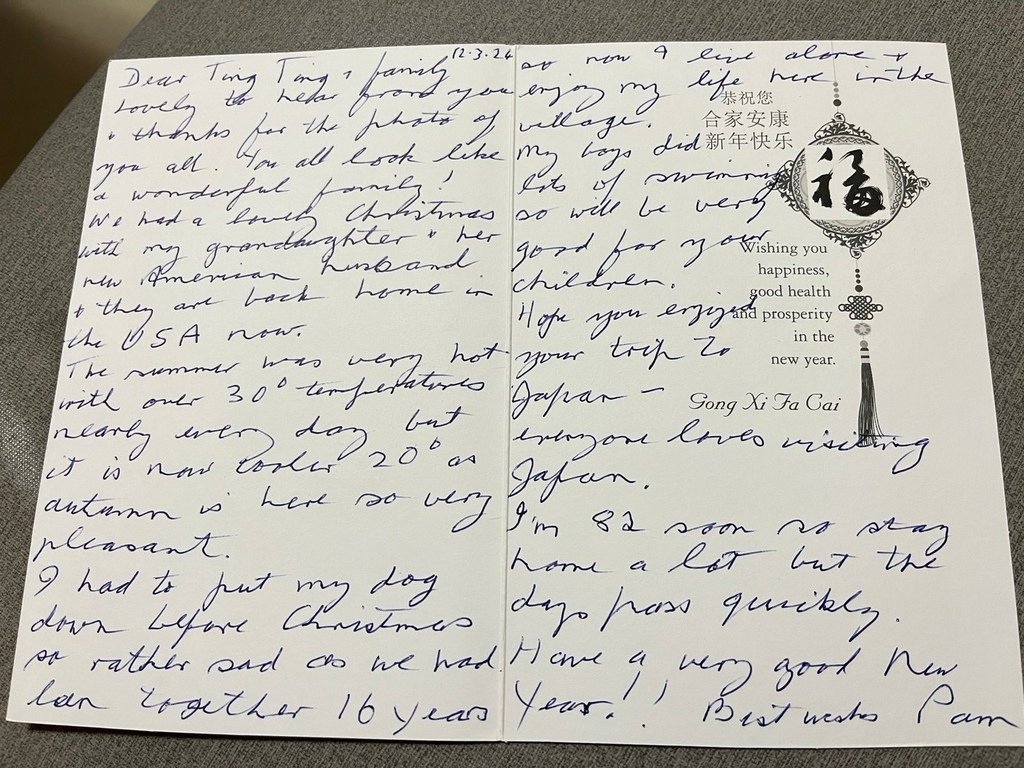 12.3.24
Dear Ting Ting & family
Lovely to hear from you
& thanks for the photo of
you all. You all look like
a wonderful family!
We had a lovely Christmas
with my grandaughter & her
new American husband
& they are back home in
the USA now.
The summer was very hot
with over 30° temperatures
nearly every day but
it is now cooler 20° as
autumn is here so very
pleasant.
I had to put my dog
down before Christmas
so rather sad as we had
been together 16 years
so now I live alone &
enjoy my life here in the
village.
My boys did
lots of swimming
so will be very
good for your
children.
Hope you enjoyed
your trip to
Japan –
everyone loves visiting
Japan.
I'm 82 soon so stay
home a lot but the
days pass quickly.
Have a very good New
Year!! Best wishes Pam
恭祝您
合家安康
新年快乐
福
Wishing you
happiness,
good health
and prosperity
in the
new year.
Gong Xi Fa Cai